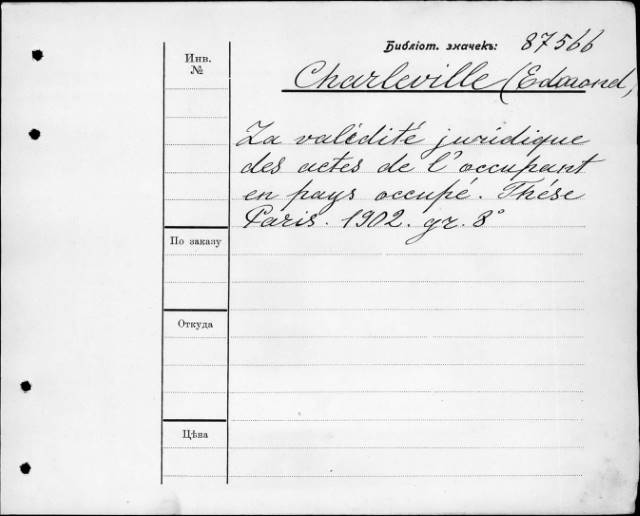 Библіот. значекъ: 87566
Инв.
№
Charleville (Edmond,
La validité juridique
des actes de l'occupant
en pays occupé. Thése
Paris. 1902. gr. 8°
По заказу
Откуда
Цѣна